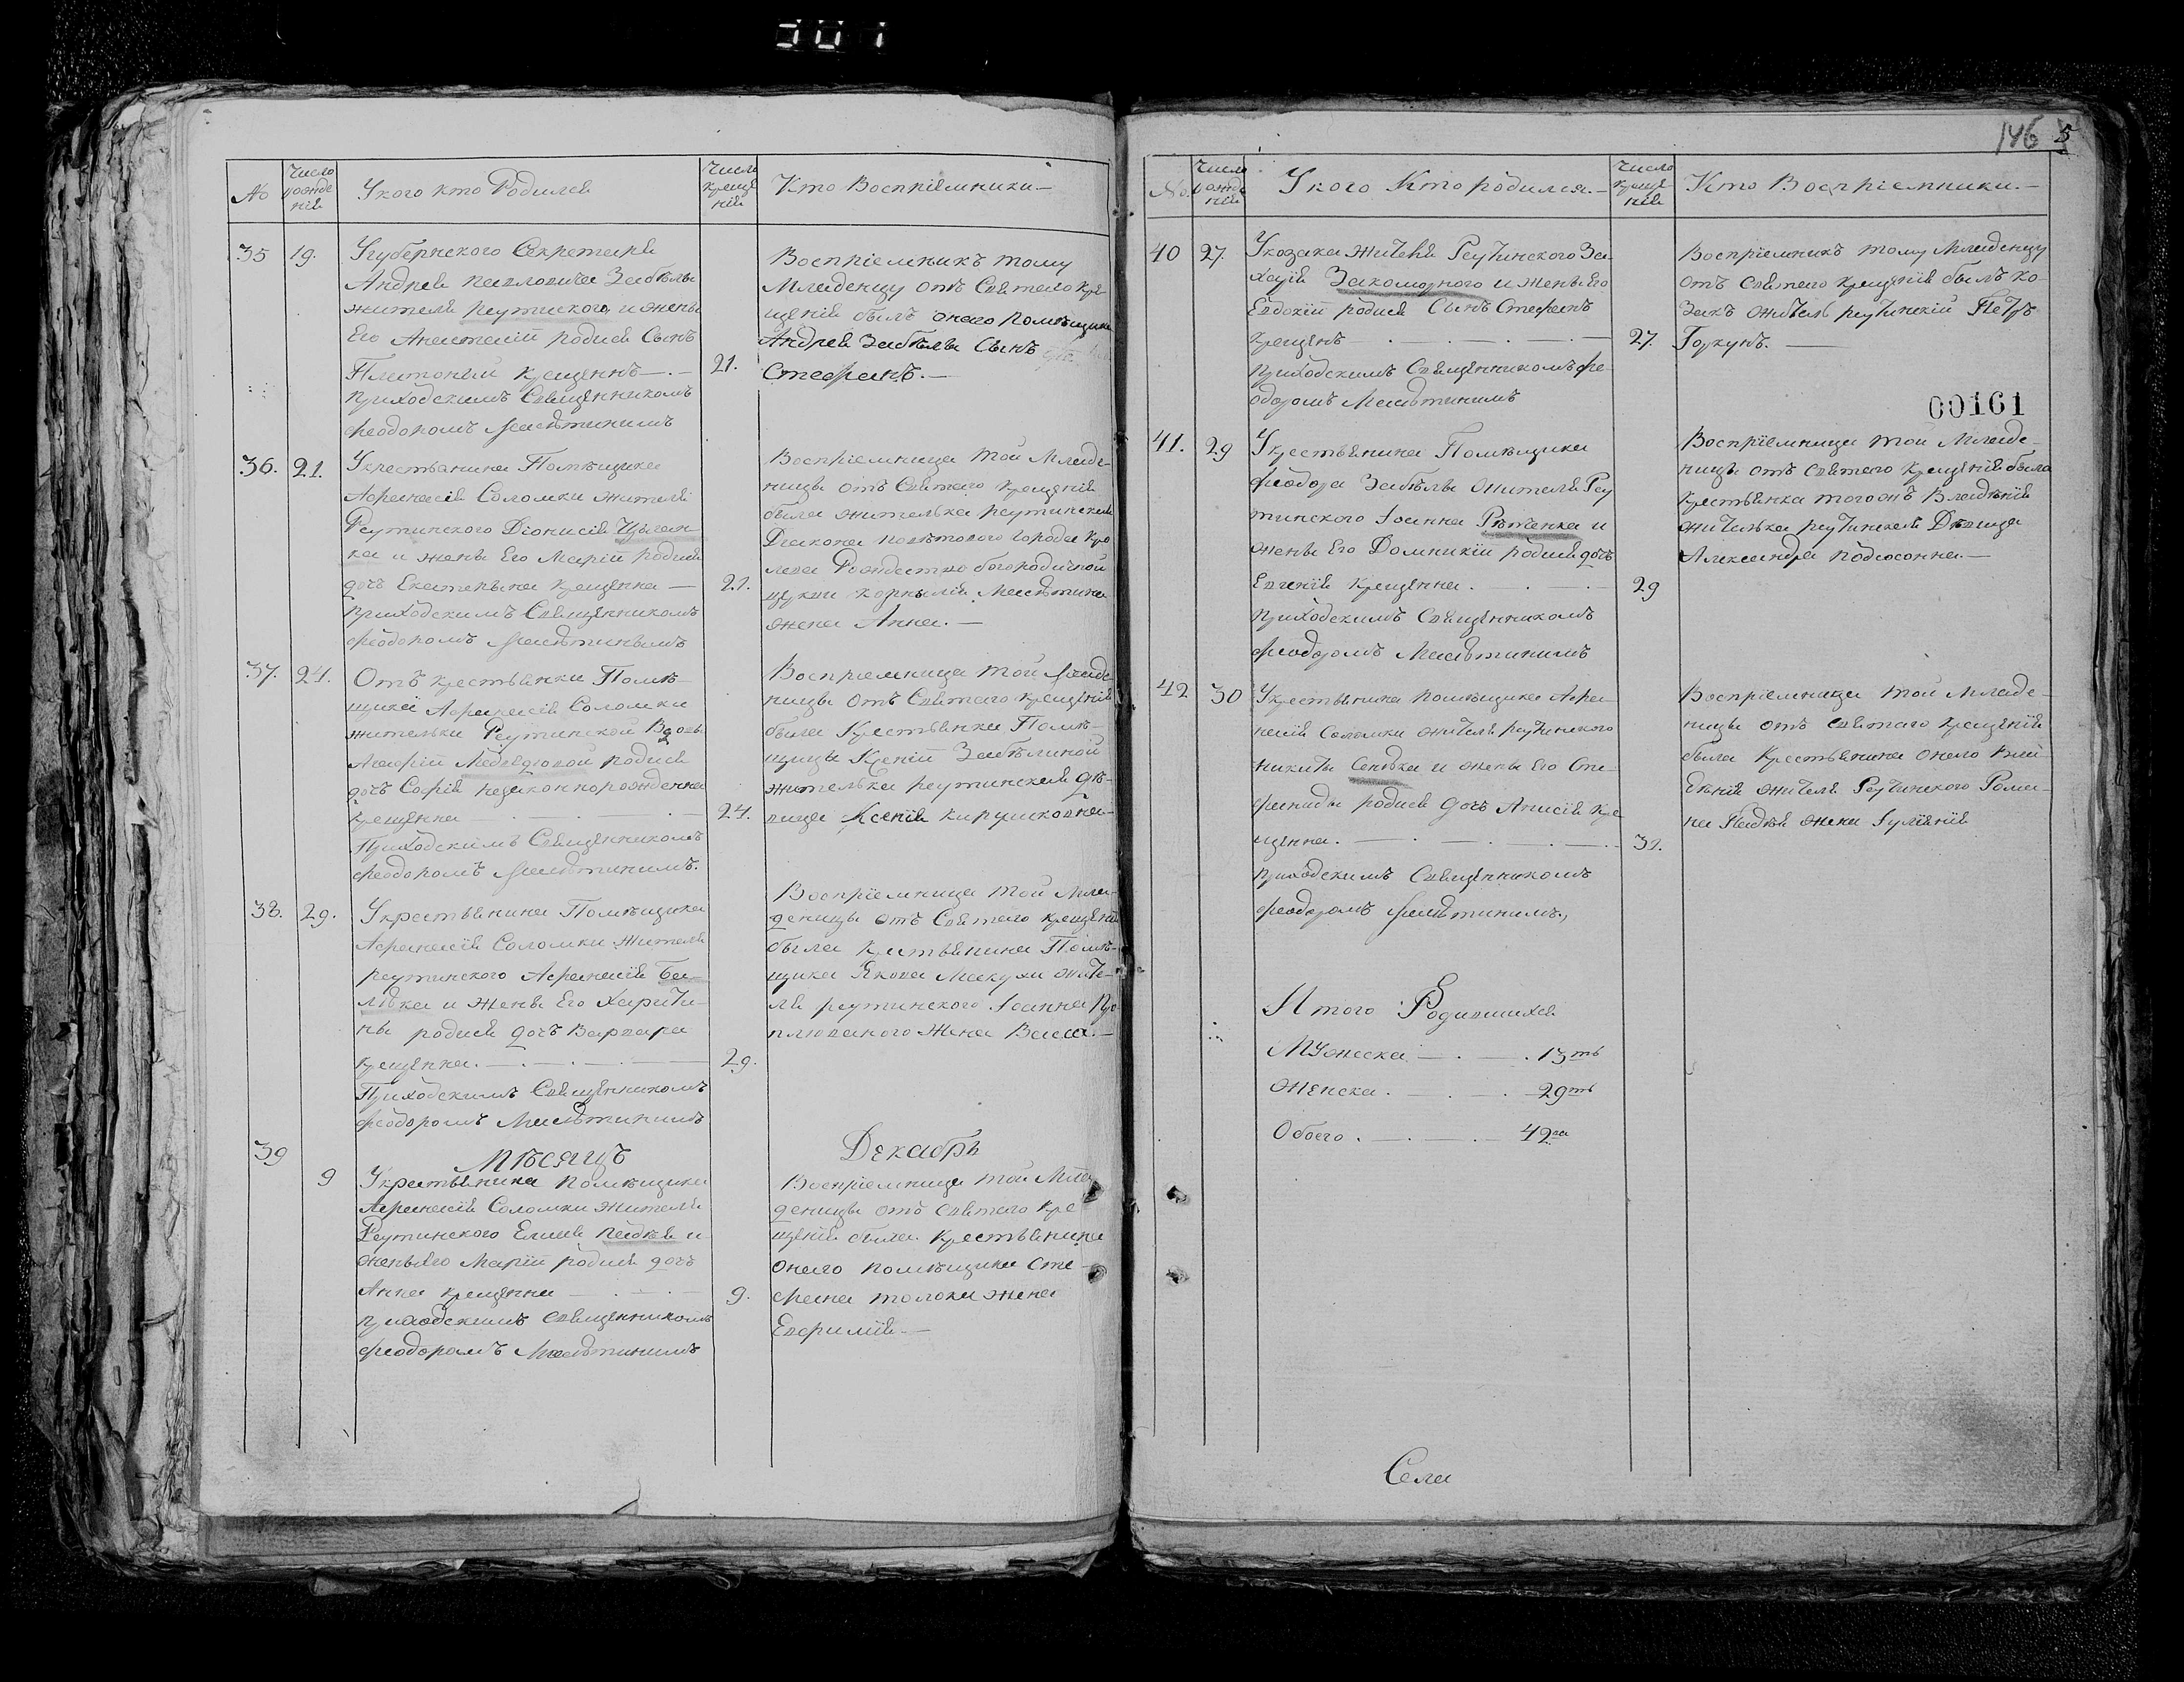 146 5
№
Число рожде нія
У кого кто Родился
Число креще нія
Кто Воспріемники
35
19.
У губернского Секретаря
Андрея Павловича Забѣлы
жителя реутиского и жены
Его Анастасіи родися Сынъ
Платоній крещеннъ
приходскимъ Священникомъ
феодоромъ
21.
Воспріемникъ тому
Младенцу отъ Святаго кре
щенія былъ онаго помѣщика
Андрея Забѣлы Сынъ
Стефанъ.
36.
21.
У крестьянина Помѣщика
Афанасія Соломки жителя
Реутинского Діонисія Цыган
ка и жены Его Маріи родися
дочь Екатерына крещенна
приходскимъ Священникомъ
феодоромъ
21.
Воспріемница той Младе
ницы отъ Святаго крещенія
была жителька реутинская
Диакона города Кро
левца Рождество богородичной
церкви жена Анна.
37.
24.
Отъ крестьянки Помѣ
щика Афанасія Соломки
жительки Реутинской Вдовы
Медведовой родися
дочь Софія незаконнорожденна
крещенна
Приходскимъ Священникомъ
феодоромъ
24.
Воспріемница той Младе
ницы отъ Святаго крещенія
была Крестьянка Помѣ
щицы Ксеніи Забѣлиной
жителька реутинская дѣ
вица Ксенія
38.
29.
У крестьянина Помѣщика
Афанасія Соломки жителя
реутинского Афанасія Ба
лѣка и жены Его Харити
ны родися дочь Варвара
крещенна.
Приходскимъ Священникомъ
феодоромъ
29.
Воспріемница той Мла
деницы отъ Святаго крещенія
была крестьянина Помѣ
щика Якова Макухи жите
ля реутинского Іоанна
жена Васса.
39
Мѣсяцъ Декабрь
9
У крестьянина помѣщика
Афанасія Соломки жителя
Реутинского Елисея Падѣя и
жены Его Маріи родися дочь
Анна крещенна
приходскимъ Священникомъ
феодоромъ
9.
Воспріемница той Мла
деницы отъ святаго кре
щенія была Крестьянина
онаго помѣщика Сте
фана Толоки жена
Евфимія
№.
Число рожде нія
У кого Кто родился.
Число креще нія
Кто Воспріемники.
40
27.
У козака жителя Реутинского За
харія Закоморного и жены Его
Евдокіи родися Сынъ Стефанъ
крещенъ
приходскимъ Священникомъ фе
одоромъ
27.
Воспріемникъ тому Младенцу
отъ Святаго крещенія былъ ко
закъ житель реутинскій Петръ
Горкунъ.
00161
41.
29
У крестьянина Помѣщика
феодора Забѣлы жителя Реу
тинского Іоанна Рѣтенка и
жены Его Домникіи родися дочь
Евгенія крещенна.
приходскимъ Священникомъ
феодоромъ
29
Воспріемница той Младе
ницы отъ Святаго крещенія была
крестьянка того жъ Владѣнія
жителька реутинская Дѣвица
Александра
42
30
У крестьянина помѣщика Афа
насія Соломки жителя реутинского
Никиты Сенѣка и жены Его Сте
фаниды родися дочь Анисія кре
щенна.
приходскимъ Священникомъ
феодоромъ
31.
Воспріемница той Младе
ницы отъ святаго крещенія
была Крестьянина онаго Вла
дѣнія жителя Реутинского Рома
на Падѣя жена Іуліянія
Итого Родившихся
Мужеска 13ть
Женска. 29ть
Обоего. 42ва
Села